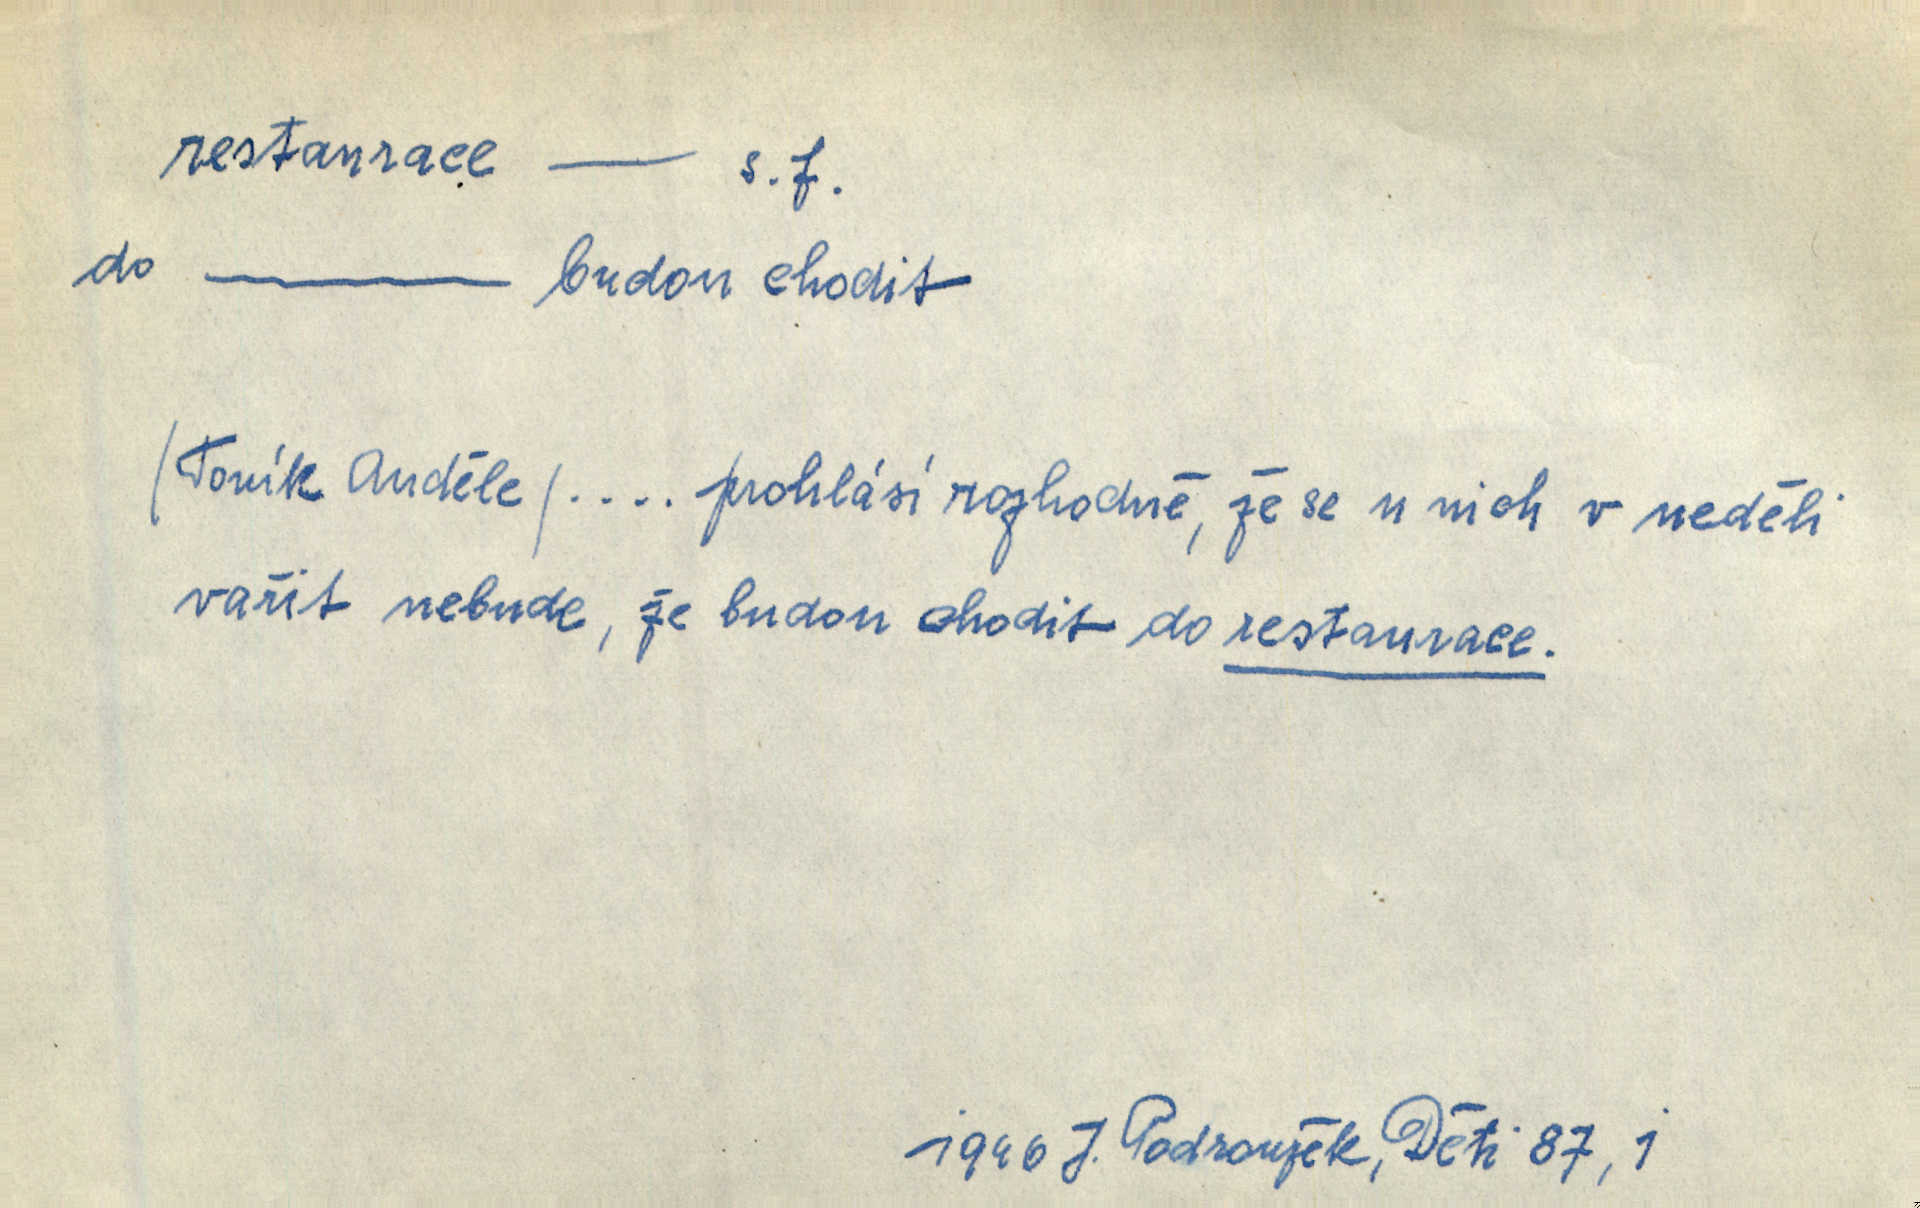 restaurace — s.f.
do ——— budou chodit
/Toník Anděle/.... prohlásí rozhodně, že se u nich v neděli
vařit nebude, že budou chodit do restaurace.
1946 J. Podroužek, Děti 87, 1